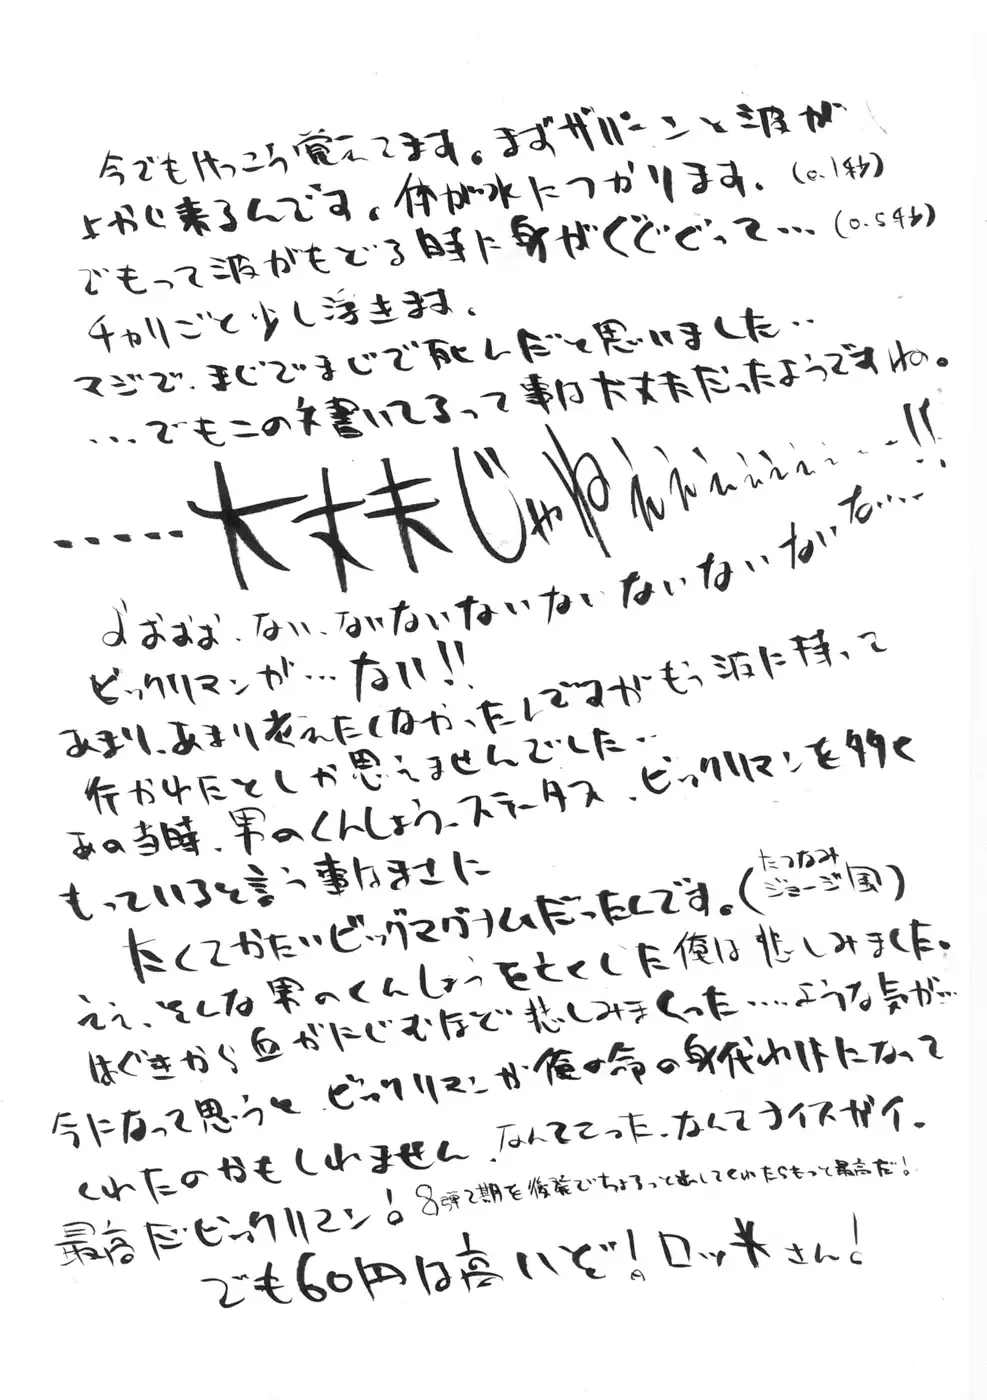 今でもけっこう覚えてます。まずザパーンと波が
よかじ来るんです。体が水につかります。(0.1秒)
でもって波がもどる時に身がぐぐぐって…(0.5秒)
チャリごと少し浮きます。
マジで、まじでまじで死んだと思いました‥
…でもこの文書いてるって事は大丈夫だったようですね。
‥‥‥大丈夫じゃねえぇぇぇぇぇぇ…!!
おおおお、ない、ないないないないないないないな‥‥
ビックリマンが…ない!!
あまり、あまり考えたくなかったんですがもう波に持って
行かれたとしか思えませんでした‥
あの当時、男のくんしょう、ステータス、ビックリマンを多く
もっていると言う事はまさに
たくてかたいビッグマグナムだったんです。(たつなみジョージ風)
ええ、そんな男のくんしょうを亡くした俺は悲しみました。
はぐきから血がにじむほど悲しみまくった‥‥ような気が…
今になって思うと、ビックリマンが俺の命の身代わりになって
くれたのかもしれません、なんてこった、なんてナイスガイ。
最高だビックリマン!8弾2期を後発でちょろっと出してくれたらもっと最高だ!
でも60円は高いぞ!ロッ米さん!